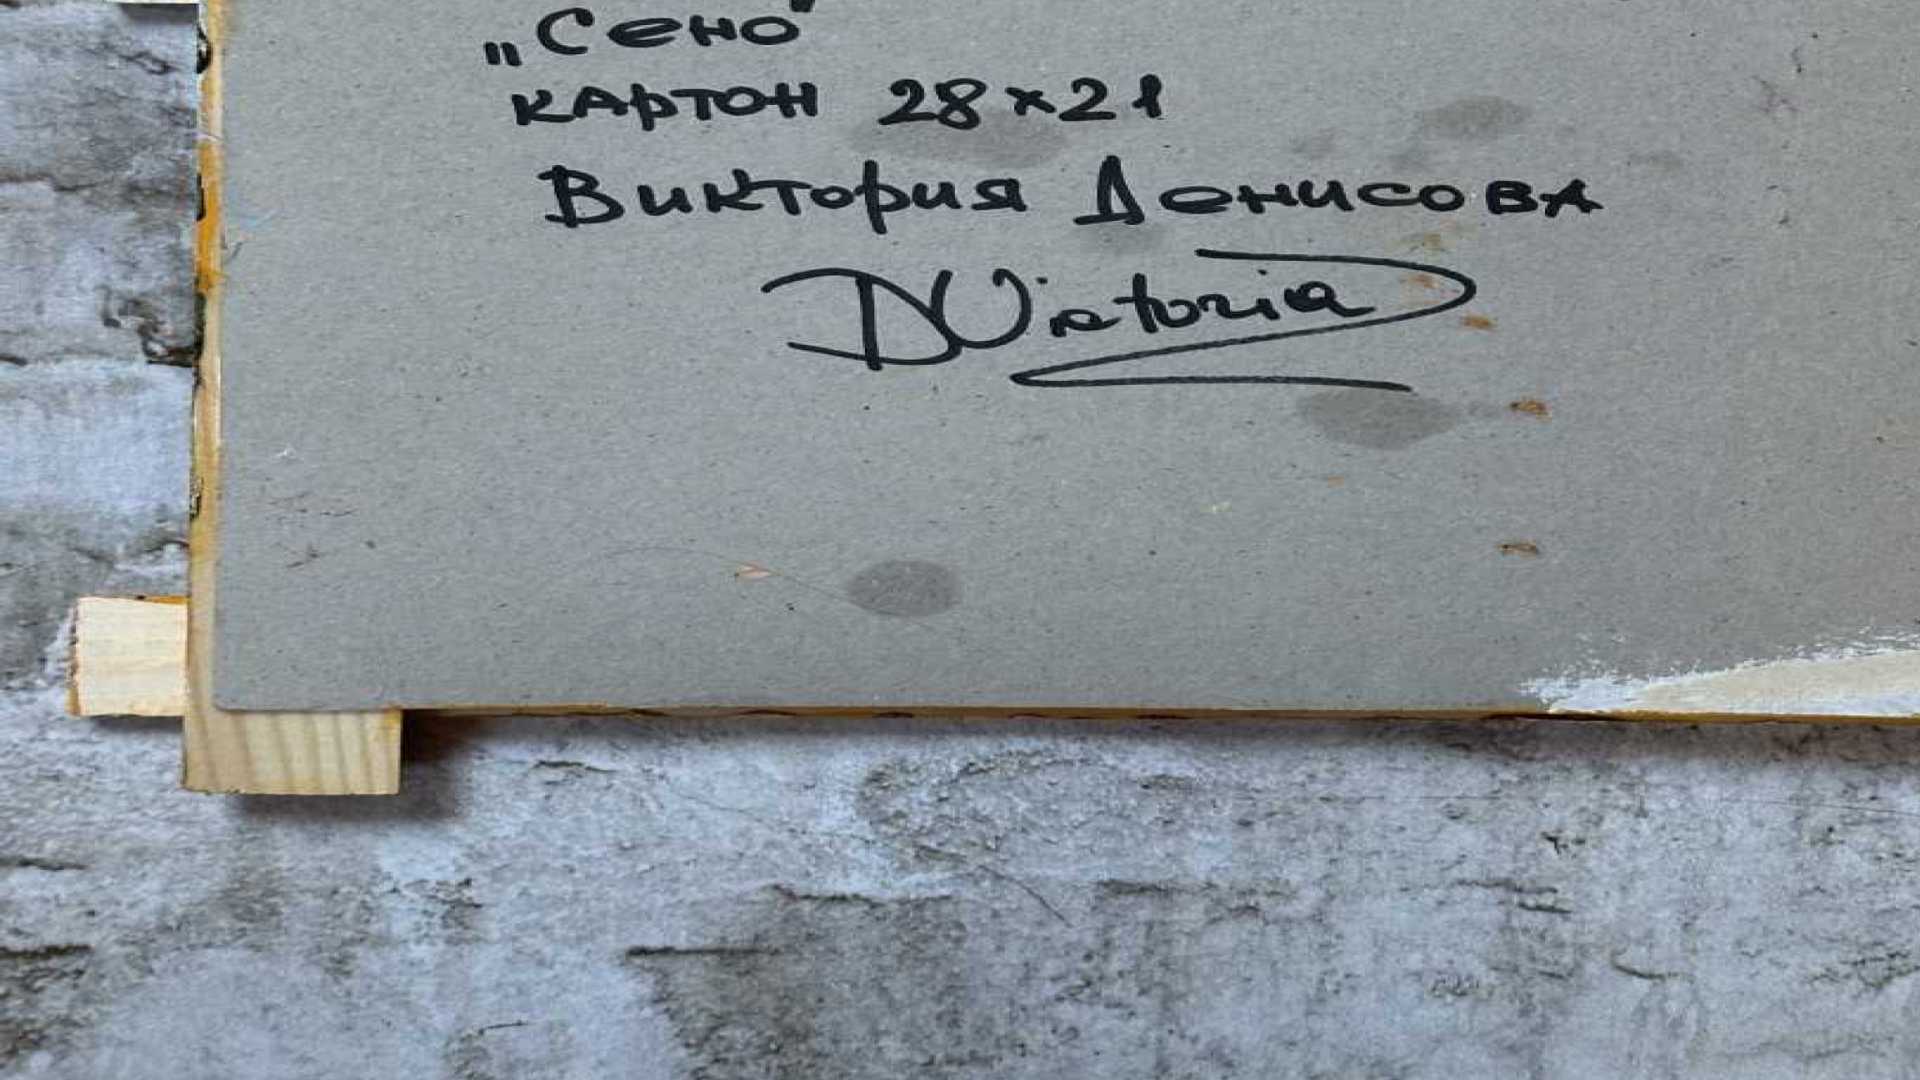 „Сено"
картон 28×21
Виктория Денисова
DViktoria